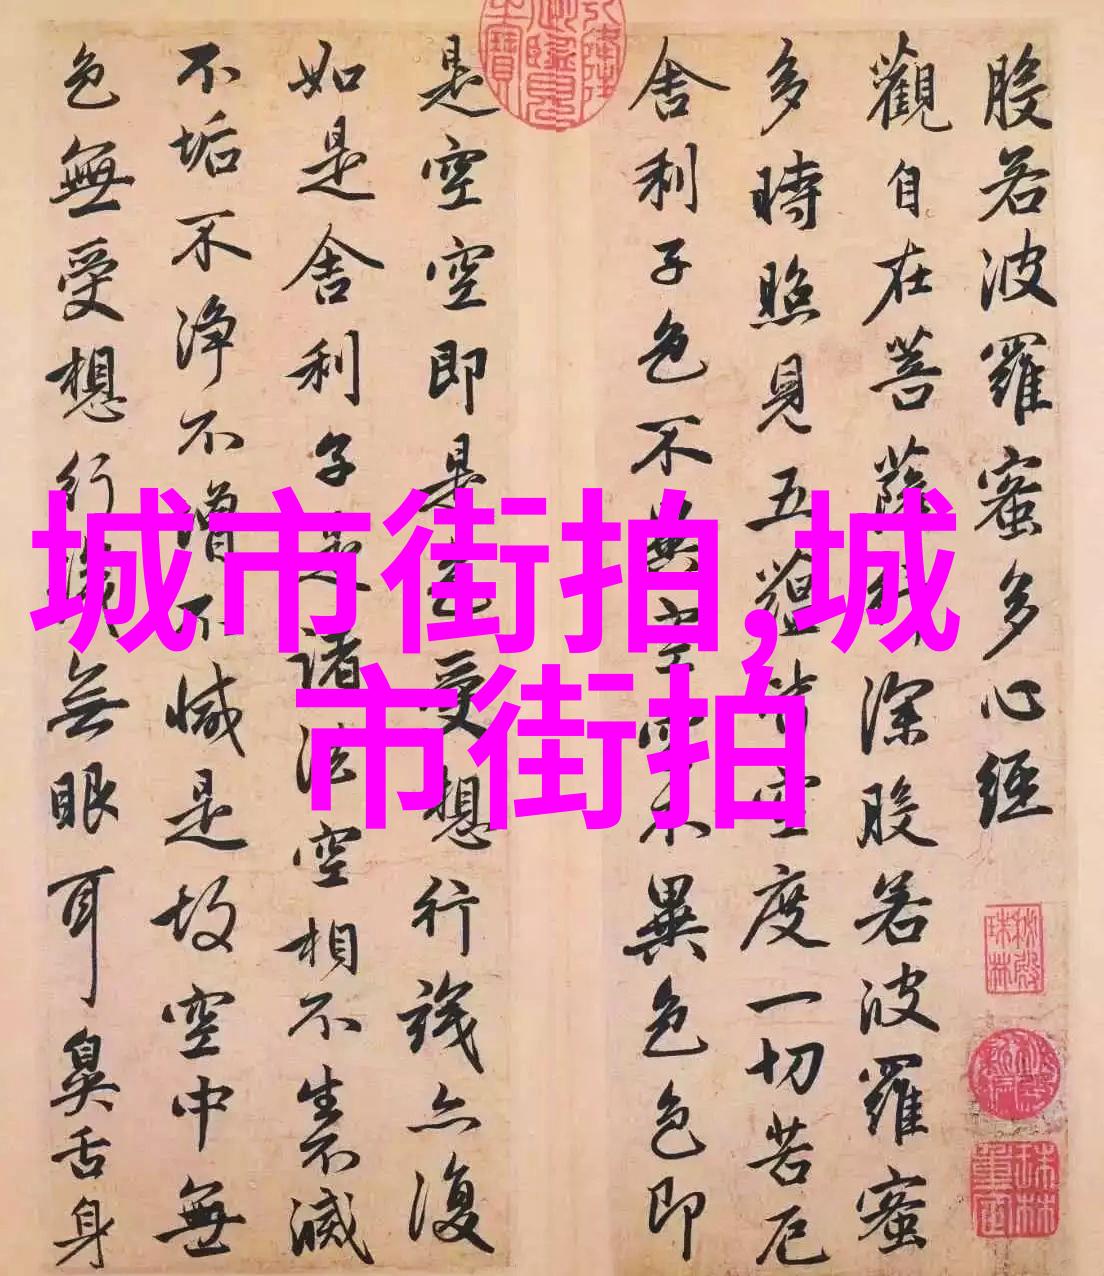 般若波羅蜜多心経
觀自在菩薩行深般若波羅蜜
多時照見五蘊皆空度一切苦厄
舍利子色不異空空不異色色即
是空空即是色受想行識亦復
如是舍利子是諸法空相不生不滅
不垢不净不增不減是故空中無
色無受想行識無眼耳鼻舌身
城市街拍,城
市街拍